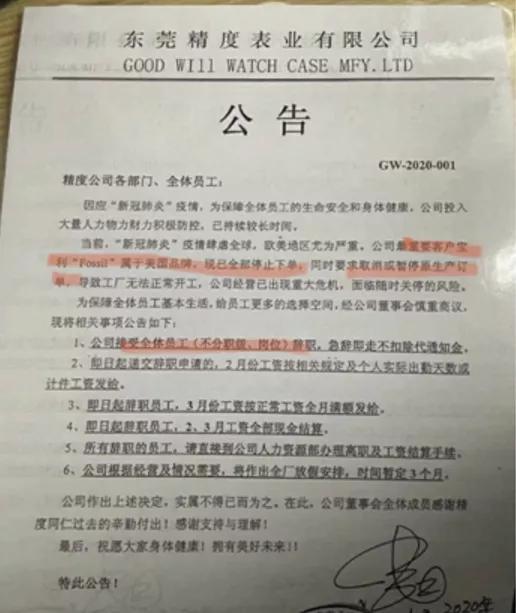 东莞精度表业有限公司
GOOD WIll WATCH CASE MFY.LTD
公告
GW-2020-001
精度公司各部门、全体员工：
因应“新冠肺炎”疫情，为保障全体员工的生命安全和身体健康，公司投入
大量人力物力财力积极防控，已持续较长时间。
当前，“新冠肺炎”疫情肆虐全球，欧美地区尤为严重，公司最重要客户宝
利“Fossil”属于美国品牌，现已全部停止下单，同时要求取消或暂停原生产订
单，导致工厂无法正常开工，公司经营已出现重大危机，面临随时关停的风险。
为保障全体员工基本生活，给员工更多的选择空间，经公司董事会慎重商议，
现将相关事项公告如下：
1、公司接受全体员工（不分职级、岗位）辞职，急辞即走不扣除代通知金。
2、即日起递交辞职申请的，2月份工资按相关规定及个人实际出勤天数或
计件工资发给。
3、即日起辞职员工，3月份工资按正常工资全月满额发给。
4、即日起辞职员工，2、3月工资全部现金结算。
5、所有辞职的员工，请直接到公司人力资源部办理离职及工资结算手续。
6、公司根据经营及情况需要，将作出全厂放假安排，时间暂定3个月。
公司作出上述决定，实属不得已而为之。在此，公司董事会全体成员感谢精
度同仁过去的辛勤付出！感谢支持与理解！
最后，祝愿大家身体健康！拥有美好未来！！
特此公告！
2020年